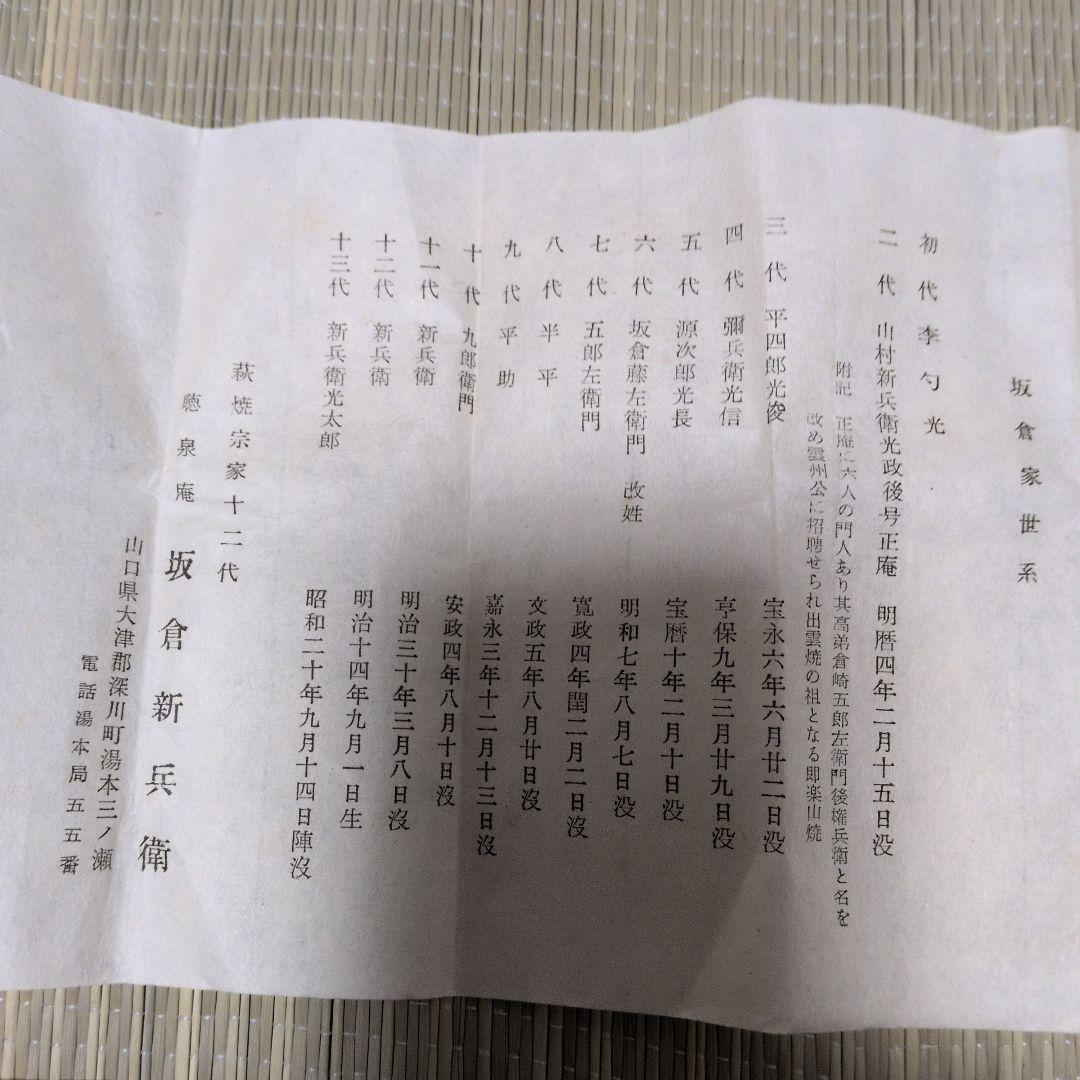 坂倉家世系
初代李勺光
二代 山村新兵衛光政後号正庵 明暦四年二月十五日没
附記 正庵に六人の門人あり其高弟倉崎五郎左衛門後権兵衛と名を
改め雲州公に招聘せられ出雲焼の祖となる即楽山焼
三代 平四郎光俊 宝永六年六月廿二日没
四代 彌兵衛光信 亨保九年三月廿九日没
五代 源次郎光長 宝暦十年二月十日没
六代 坂倉藤左衛門 改姓 明和七年八月七日没
七代 五郎左衛門 寛政四年閏二月二日没
八代 半平 文政五年八月廿日没
九代 平助 嘉永三年十二月十三日没
十代 九郎衛門 安政四年八月十日没
十一代 新兵衛 明治三十年三月八日没
十二代 新兵衛 明治十四年九月一日生
十三代 新兵衛光太郎 昭和二十年九月十四日陣没
萩焼宗家十二代
聴泉庵 坂倉新兵衛
山口県大津郡深川町湯本三ノ瀬
電話湯本局五五番